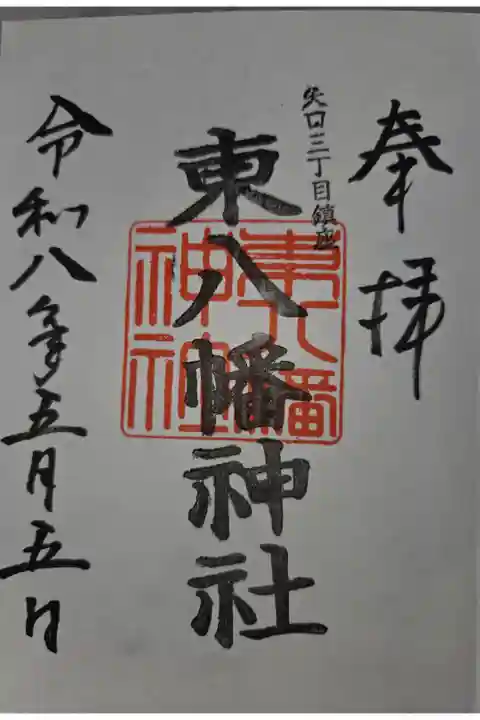 奉拝
矢口三丁目鎮座
東八幡神社
東八幡
神社
令和八年五月五日